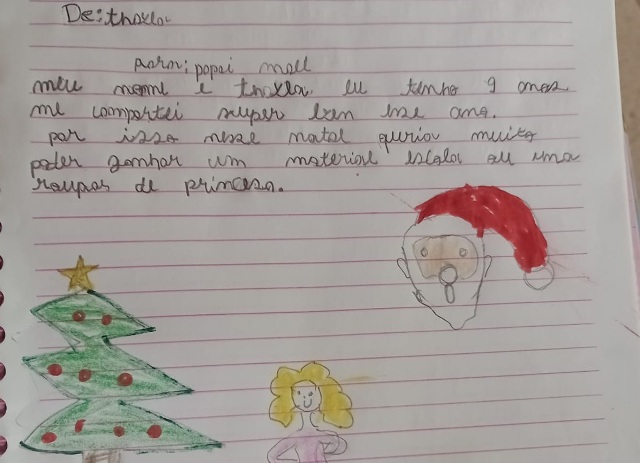 De: thaxla
para: papai noel
meu nome e thaxla eu tenho 9 anos
me comportei super ben ese ano.
por isso nese natal queria muito
poder ganhar um material escola ou uma
roupas de princesa.